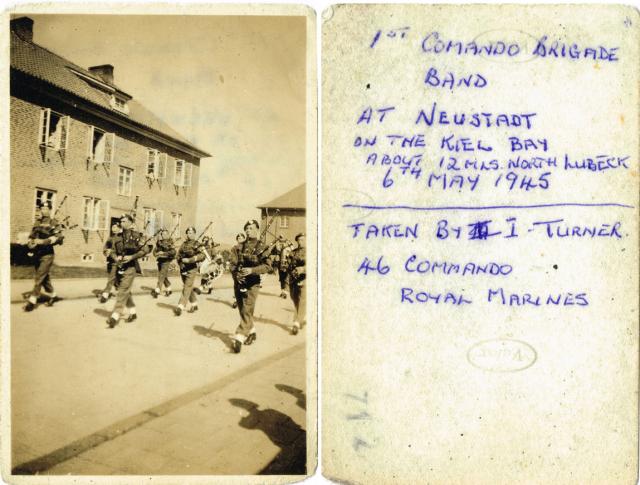 1ST COMANDO BRIGADE
BAND
AT NEUSTADT
ON THE KIEL BAY
ABOUT 12 MLS. NORTH LUBECK
6TH MAY 1945
TAKEN BY I. TURNER.
46 COMMANDO
ROYAL MARINES
Velox